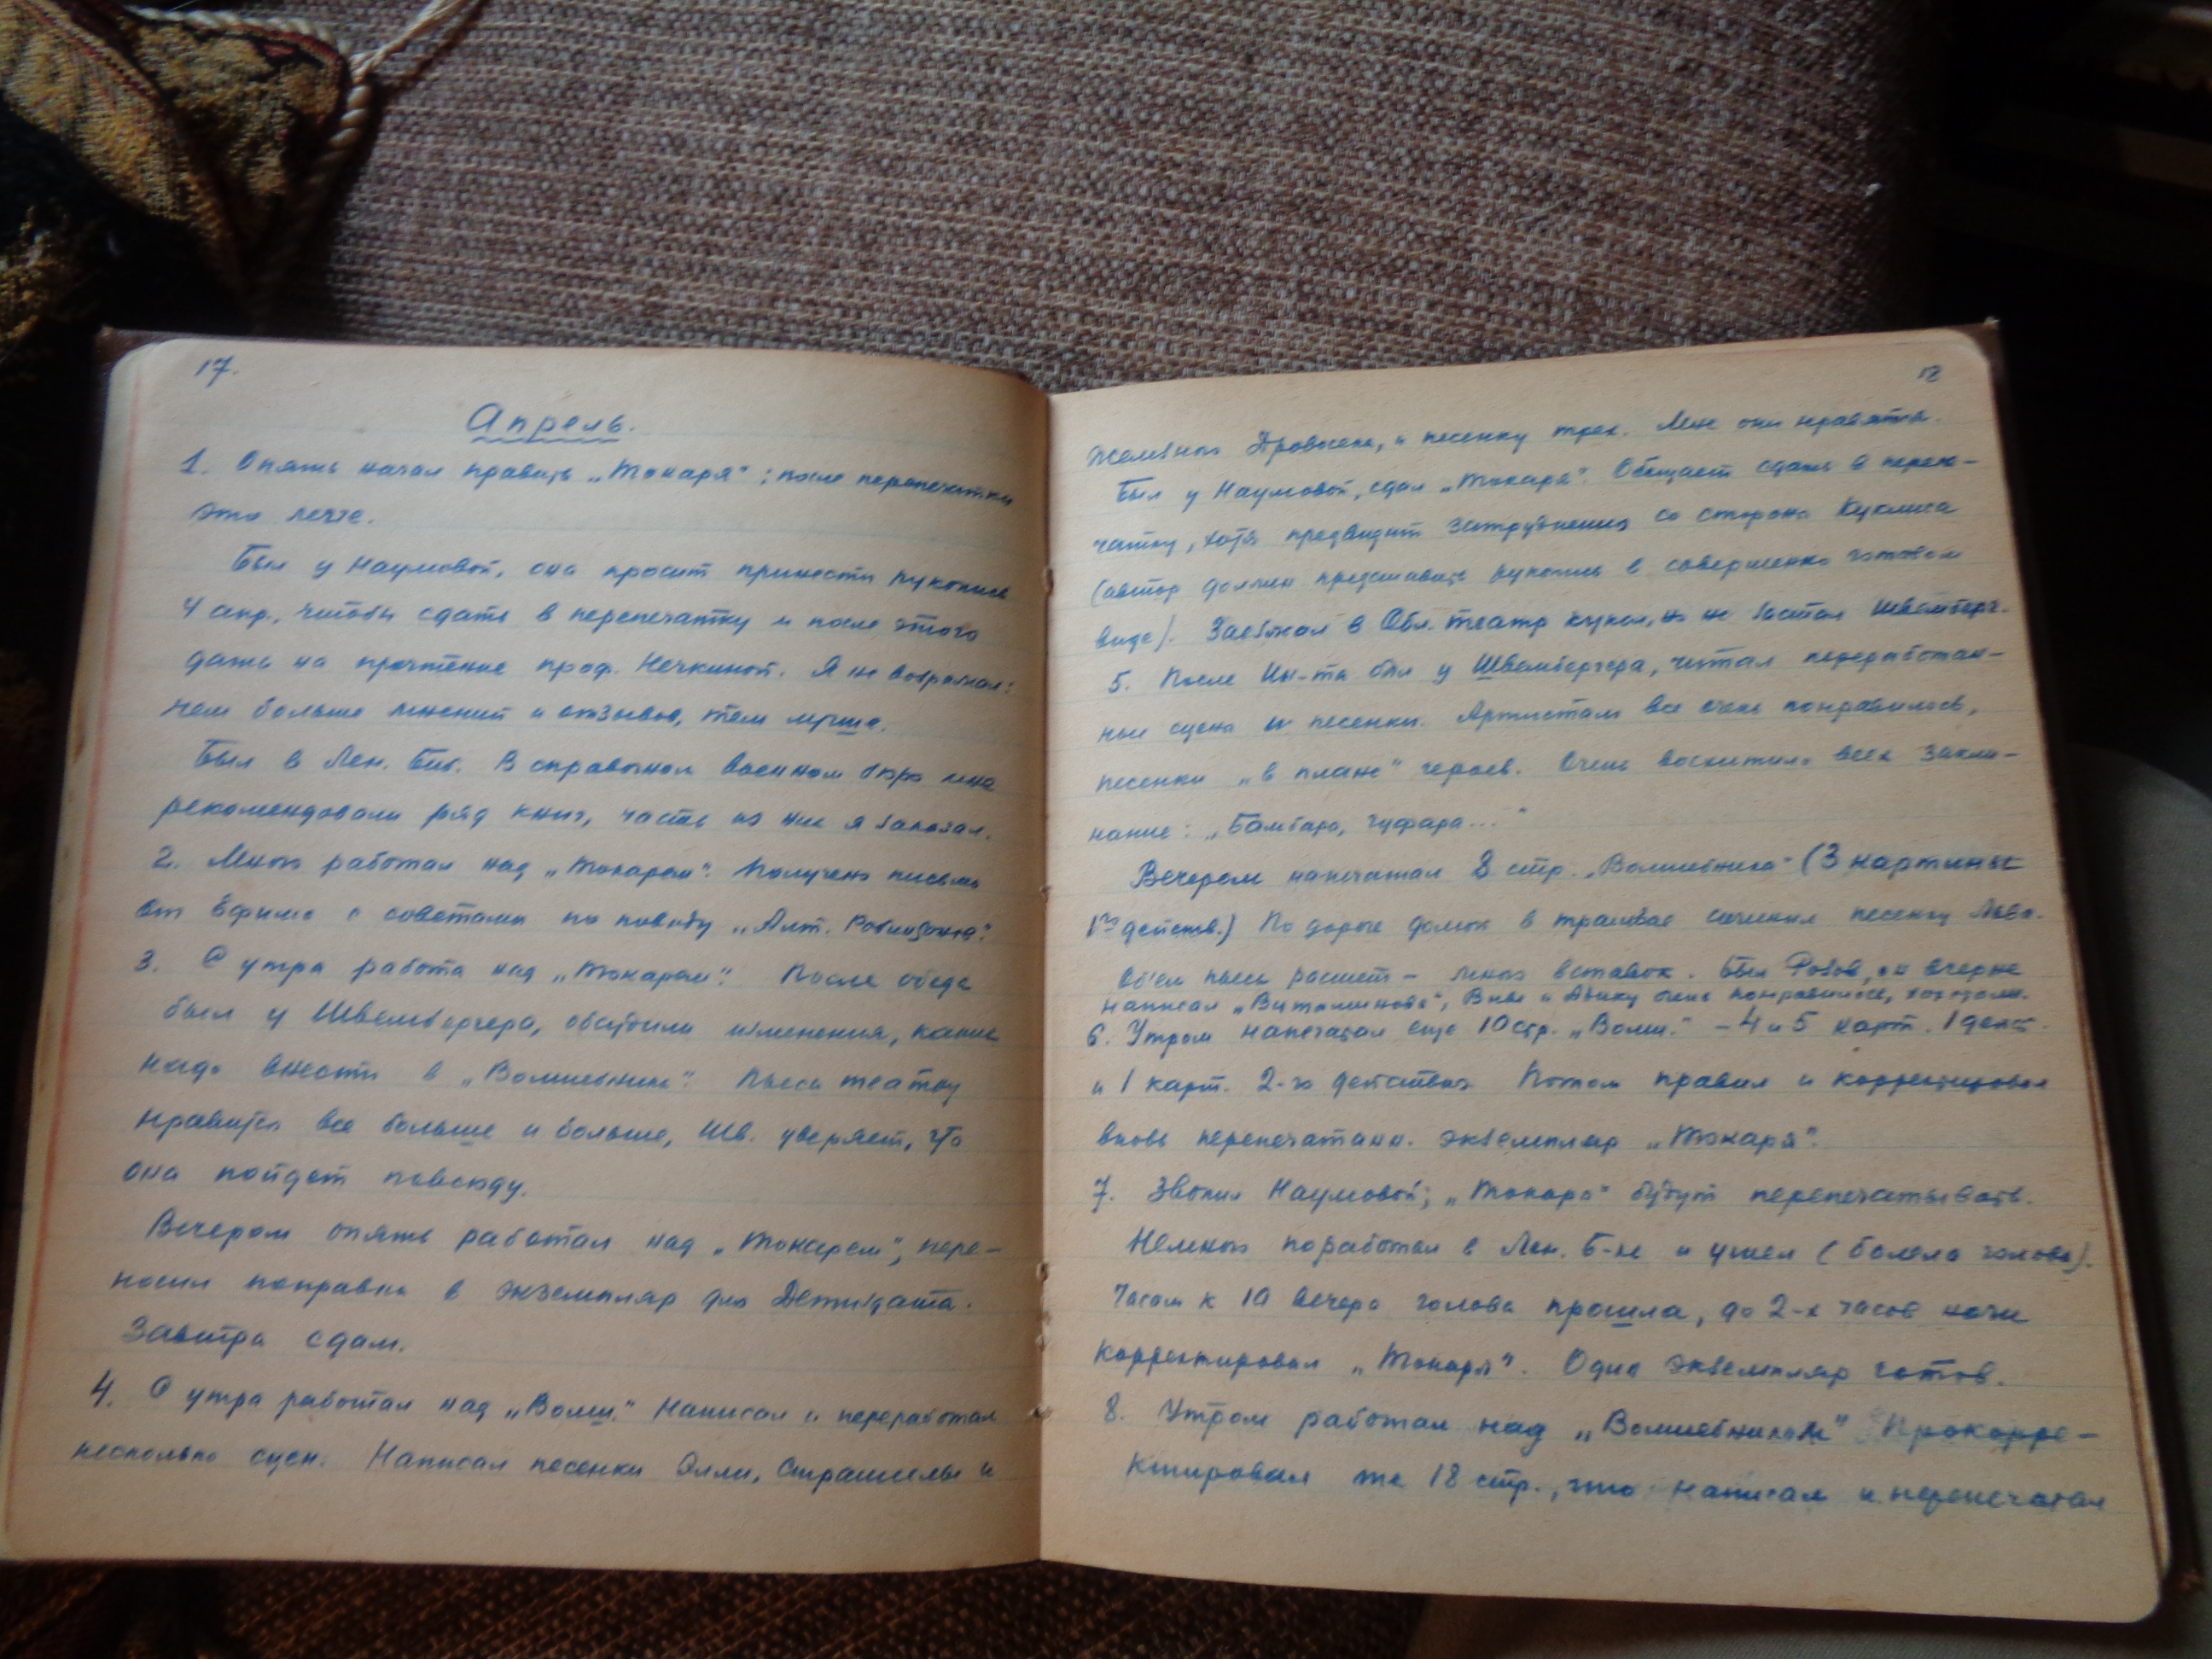 17.
Апрель.
1. Опять начал править „Токаря“; после перепечатки
это легче.
Был у Наумовой, она просит принести рукопись
4 апр., чтобы сдать в перепечатку и после этого
дать на прочтение проф. Нечкиной. Я не возражал:
чем больше мнений и отзывов, тем лучше.
Был в Лен. Биб. В справочном военном бюро мне
рекомендовали ряд книг, часть из них я заказал.
2. Много работал над „Токарем“. Получено письмо
от Ефима с советами по поводу „Алт. Робинзонов“.
3. С утра работа над „Токарем“. После обеда
был у Швембергера, обсудили изменения, какие
надо внести в „Волшебник“. Пьеса театру
нравится все больше и больше, Шв. уверяет, что
она пойдет повсюду.
Вечером опять работал над „Токарем“, пере-
носил поправки в экземпляр для Детиздата.
Завтра сдам.
4. С утра работал над „Волш.“ Написал и переработал
несколько сцен. Написал песенки Элли, Страшилы и
18
Железного Дровосека, и песенку трех. Мне они нравятся.
Был у Наумовой, сдал „Токаря“. Обещает сдать в перепе-
чатку, хотя предвидит затруднения со стороны Куклиса
(автор должен представить рукопись в совершенно готовом
виде). Заезжал в Обл. театр кукол, но не застал Швемберг.
5. После Ин-та был у Швембергера, читал переработан-
ные сцены и песенки. Артистам все очень понравилось,
песенки „в плане“ героев. Очень восхитило всех закли-
нание: „Бамбара, чуфара...“
Вечером напечатал 8 стр. „Волшебника“ (3 картины
1го действ.) По дороге домой в трамвае сочинил песенку Льва.
Об'ем пьесы растет – много вставок. Был Розов, он вчерне
написал „Витаминова“, Виве и Адику очень понравилось,
6. Утром напечатал еще 10 стр. „Волш.“ – 4 и 5 карт. 1 дейст.
и 1 карт. 2-го действия Потом правил и корректировал
вновь перепечатанн. экземпляр „Токаря“.
7. Звонил Наумовой; „Токаря“ будут перепечатывать.
Немного поработал в Лен. Б-ке и ушел (болела голова).
Часам к 10 вечера голова прошла, до 2-х часов ночи
корректировал „Токаря“. Один экземпляр готов.
8. Утром работал над „Волшебником“ Прокорре-
ктировал те 18 стр., что написал и перепечатал